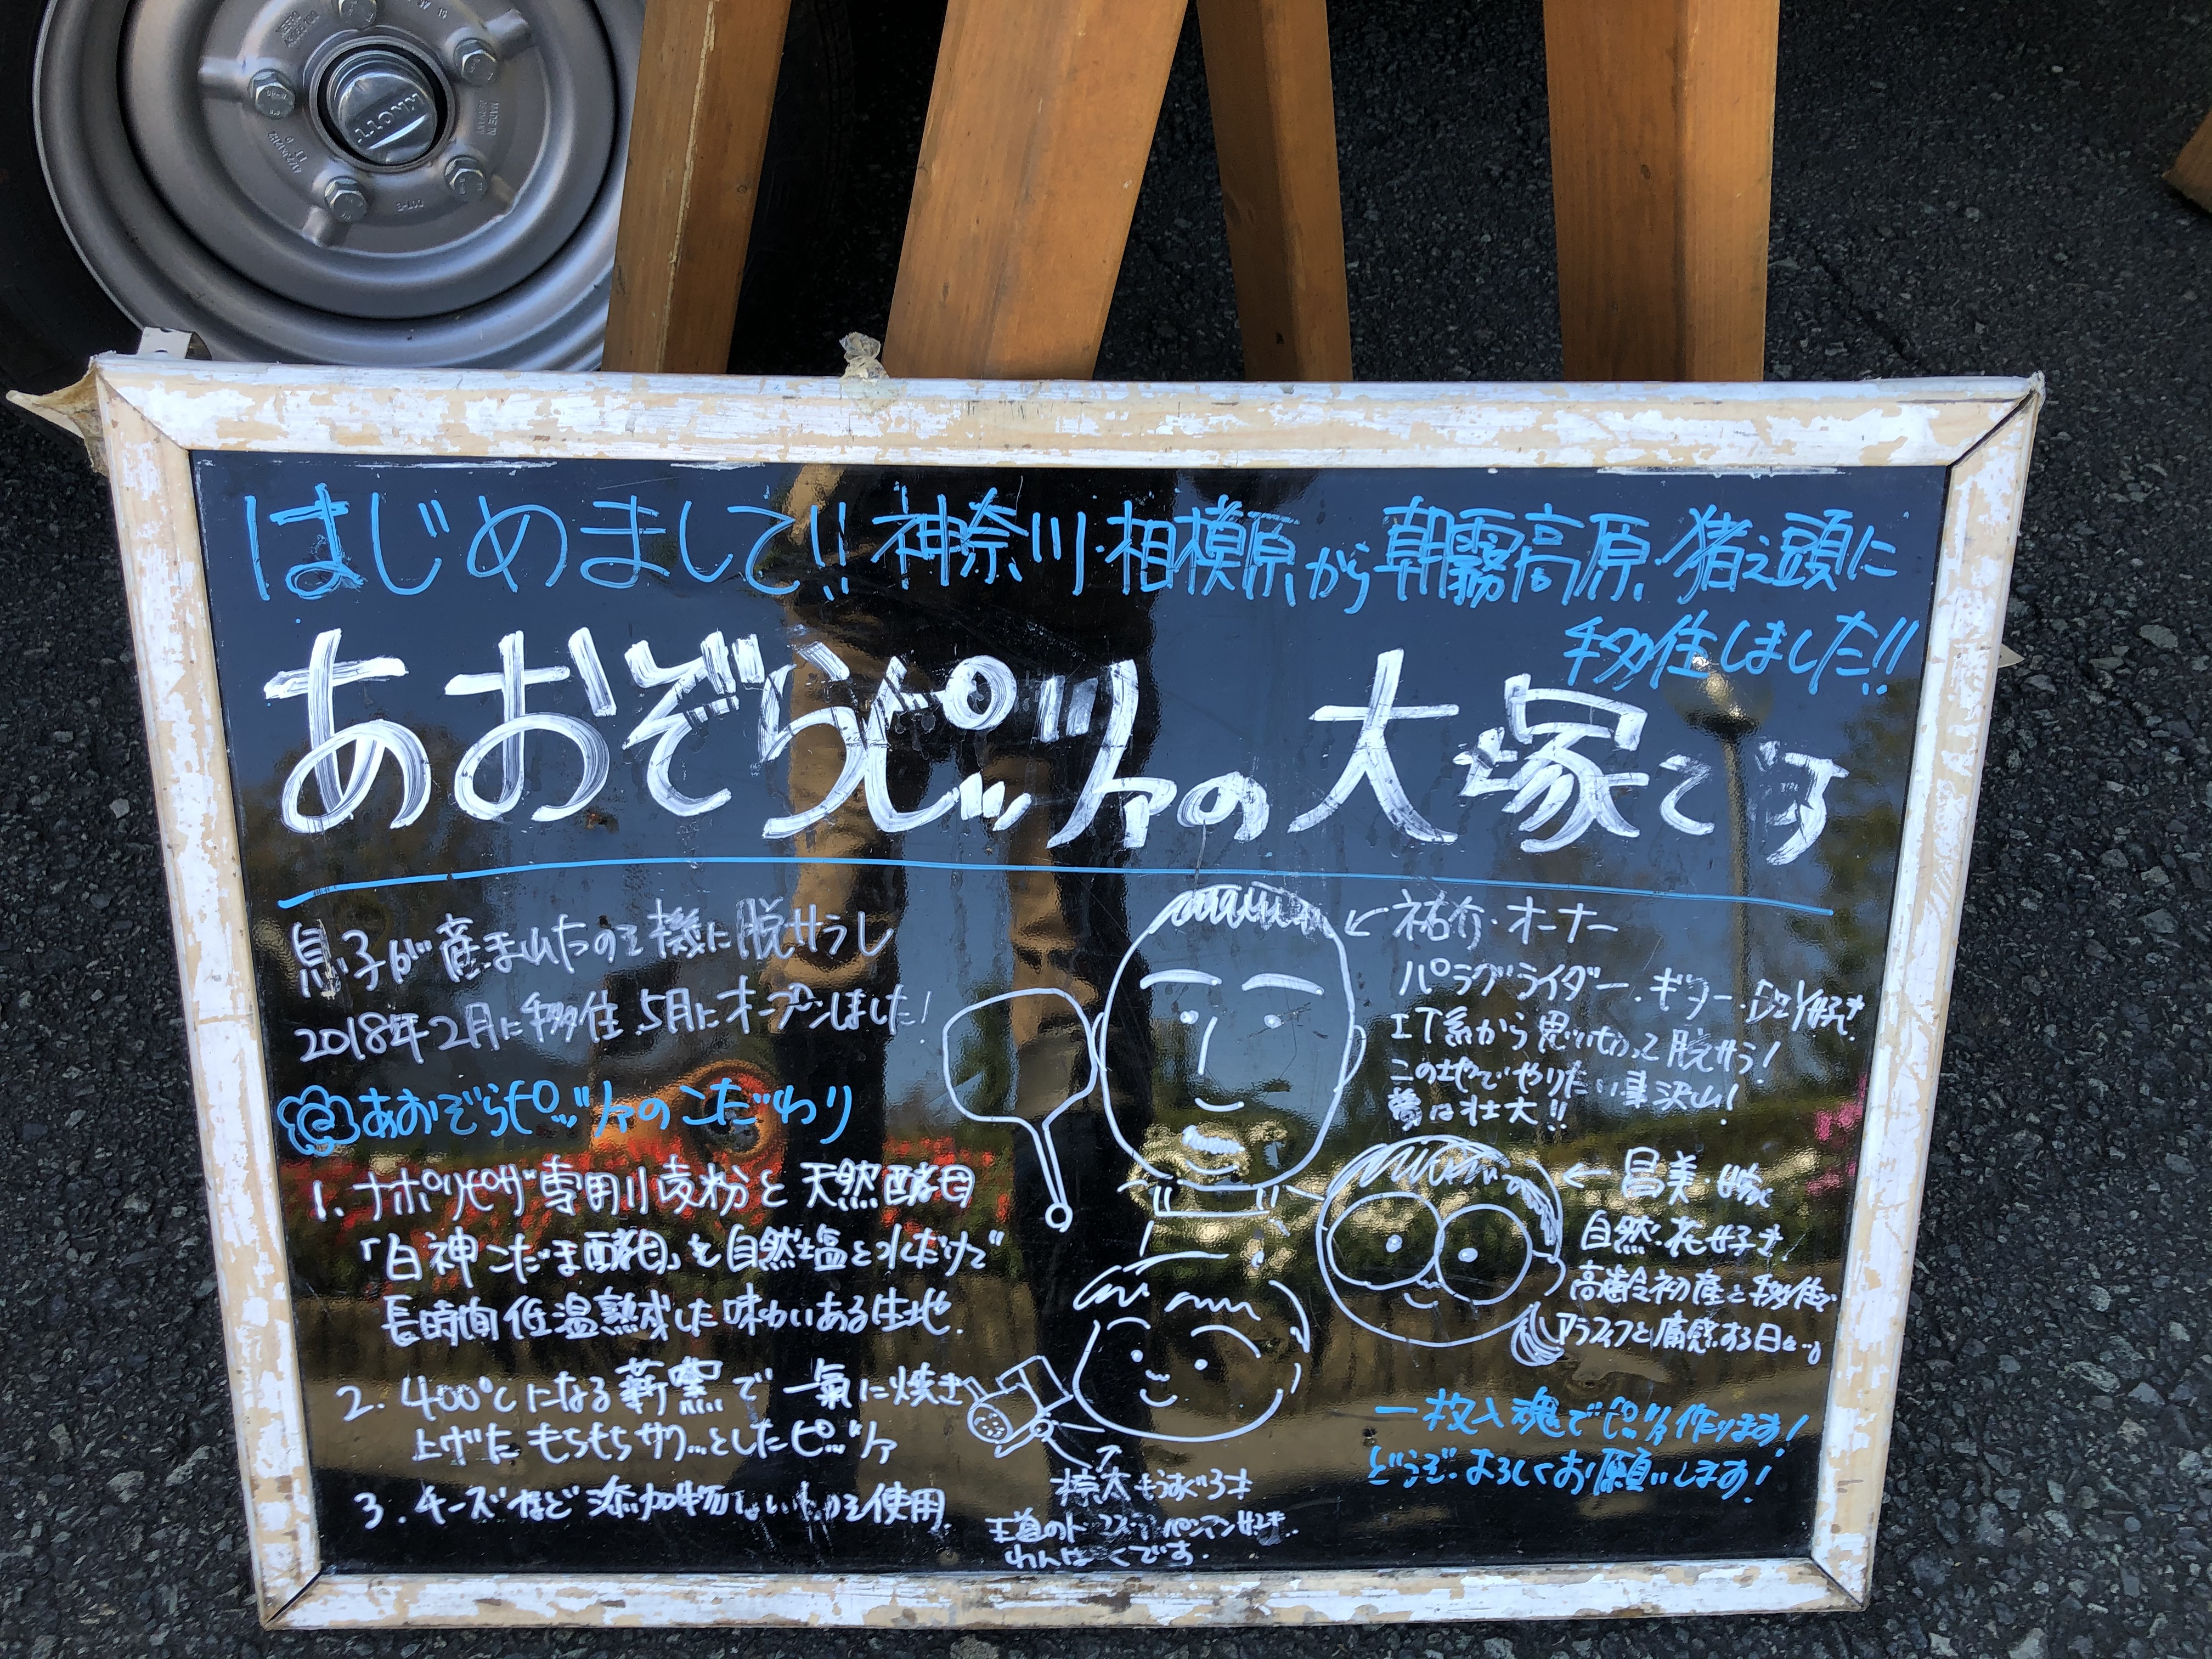 KNOTT
はじめまして!! 神奈川・相模原から朝霧高原・猪之頭に
移住しました!!
あおぞらピッツァの大塚です
息子が産まれたのを機に脱サラし
2018年2月に移住、5月にオープンしました!
あおぞらピッツァのこだわり
1. ナポリピザ専用小麦粉と天然酵母
「白神こだま酵母」を自然塩と水だけで
長時間低温熟成した味わいある生地.
2. 400℃になる薪窯で一氣に焼き
上げたもちもちサクッとしたピッツァ
3. チーズなど添加物ないものを使用.
← 祐介・オーナー
パラグライダー・ギター・DIY好き
IT系から思い切って脱サラ!
この地でやりたい事沢山!
夢は壮大!!
← 昌美・嫁
自然・花好き
高齢初産と移住で
アラフィフと痛感する日々…。
太 もうすぐ3才
パンマン好き..
わんぱくです.
一枚入魂でピッツァ作ります!
どうぞよろしくお願いします!